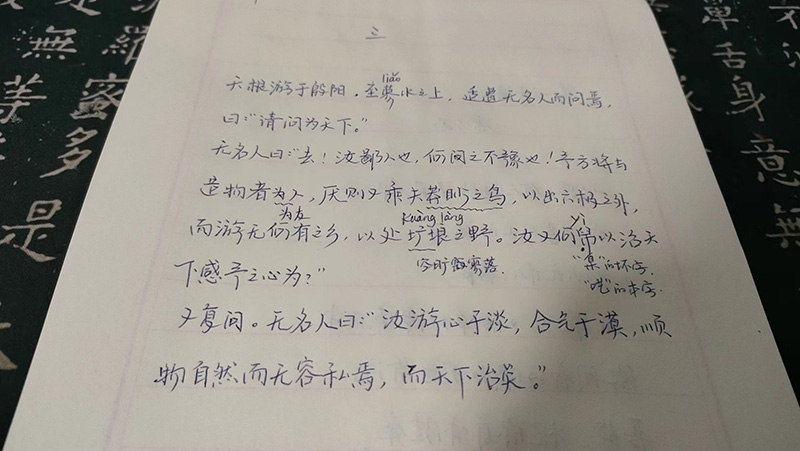 三
liǎo
天根游于殷阳，至蓼水之上，适遭无名人而问焉，
曰：“请问为天下。”
无名人曰：“去！汝鄙人也，何问之不豫也！予方将与
造物者为人，厌则又乘夫莽眇之鸟，以出六极之外，
为友 Kuàng làng yì
而游无何有之乡，以处圹埌之野。汝又何帠以治天
空旷 寥落 “臬”的坏字.
下感予之心为？” “呓”的本字.
又复问。无名人曰：“汝游心于淡，合气于漠，顺
物自然而无容私焉，而天下治矣。”
無
等
羅
蜜
多
是
單
舌
身
意
無